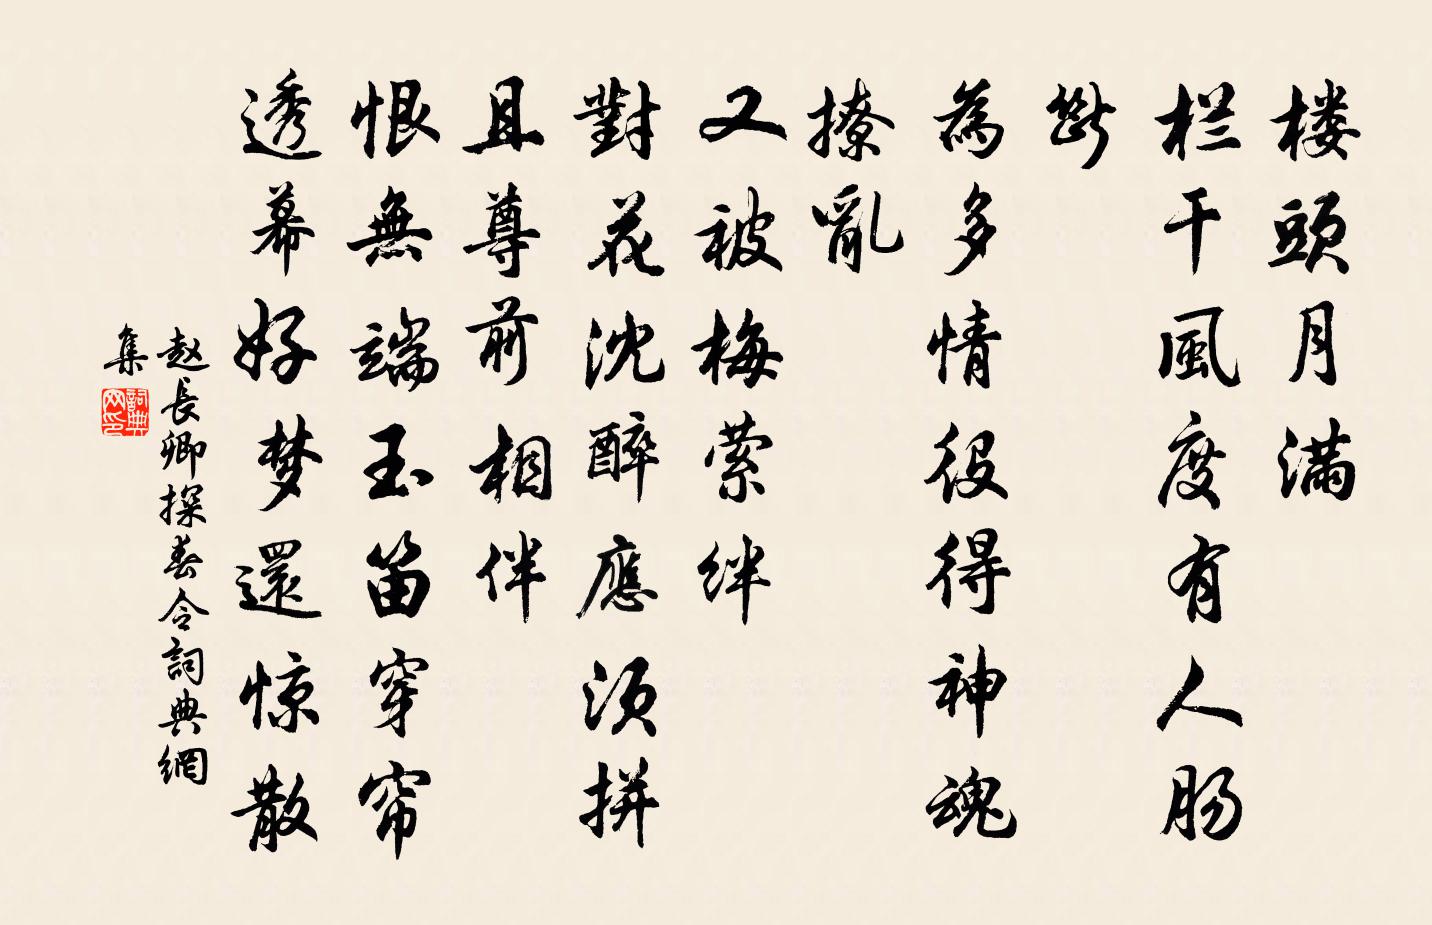 楼頭月满
栏干風度有人肠
断
為多情役得神魂
撩亂
又被梅萦絆
對花沈醉應须拼
且尊前相伴
恨無端玉笛穿帘
透幕好梦還惊散
赵長卿探春令詞典網
集
詞典
网印